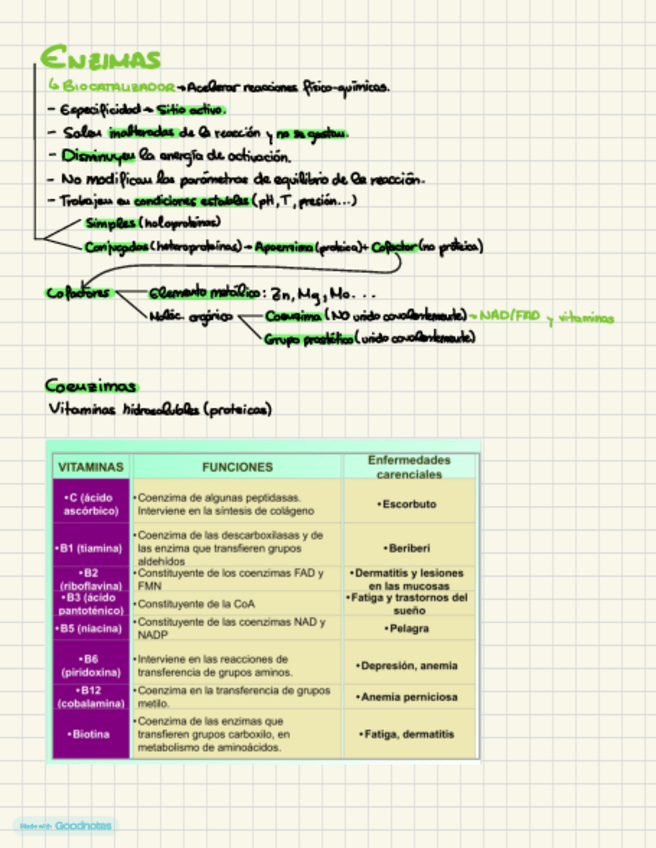 ENZIMAS
↳ BIOCATALIZADOR → Acelerar reacciones físico-químicas.
- Especificidad → Sitio activo.
- Salen inalteradas de la reacción y no se gastan.
- Disminuyen la energía de activación.
- No modifican los parámetros de equilibrio de la reacción.
- Trabajan en condiciones estables (pH, T, presión...)
Simples (holoproteínas)
Conjugadas (heteroproteínas) → Apoenzima (proteica) + Cofactor (no proteica)
Cofactores
Elemento metálico: Zn, Mg, Mo...
Moléc. orgánica
Coenzima (NO unido covalentemente) → NAD/FAD y vitaminas
Grupo prostético (unido covalentemente)
Coenzimas
Vitaminas hidrosolubles (proteicas)
VITAMINAS FUNCIONES Enfermedades carenciales
•C (ácido ascórbico)
•Coenzima de algunas peptidasas.
Interviene en la síntesis de colágeno
•Escorbuto
•B1 (tiamina)
•Coenzima de las descarboxilasas y de
las enzima que transfieren grupos
aldehídos
•Beriberi
•B2
(riboflavina)
•Constituyente de los coenzimas FAD y
FMN
•Dermatitis y lesiones
en las mucosas
•B3 (ácido
pantoténico)
•Constituyente de la CoA
•Fatiga y trastornos del
sueño
•B5 (niacina)
•Constituyente de las coenzimas NAD y
NADP
•Pelagra
•B6
(piridoxina)
•Interviene en las reacciones de
transferencia de grupos aminos.
•Depresión, anemia
•B12
(cobalamina)
•Coenzima en la transferencia de grupos
metilo.
•Anemia perniciosa
•Biotina
•Coenzima de las enzimas que
transfieren grupos carboxilo, en
metabolismo de aminoácidos.
•Fatiga, dermatitis
Made with Goodnotes